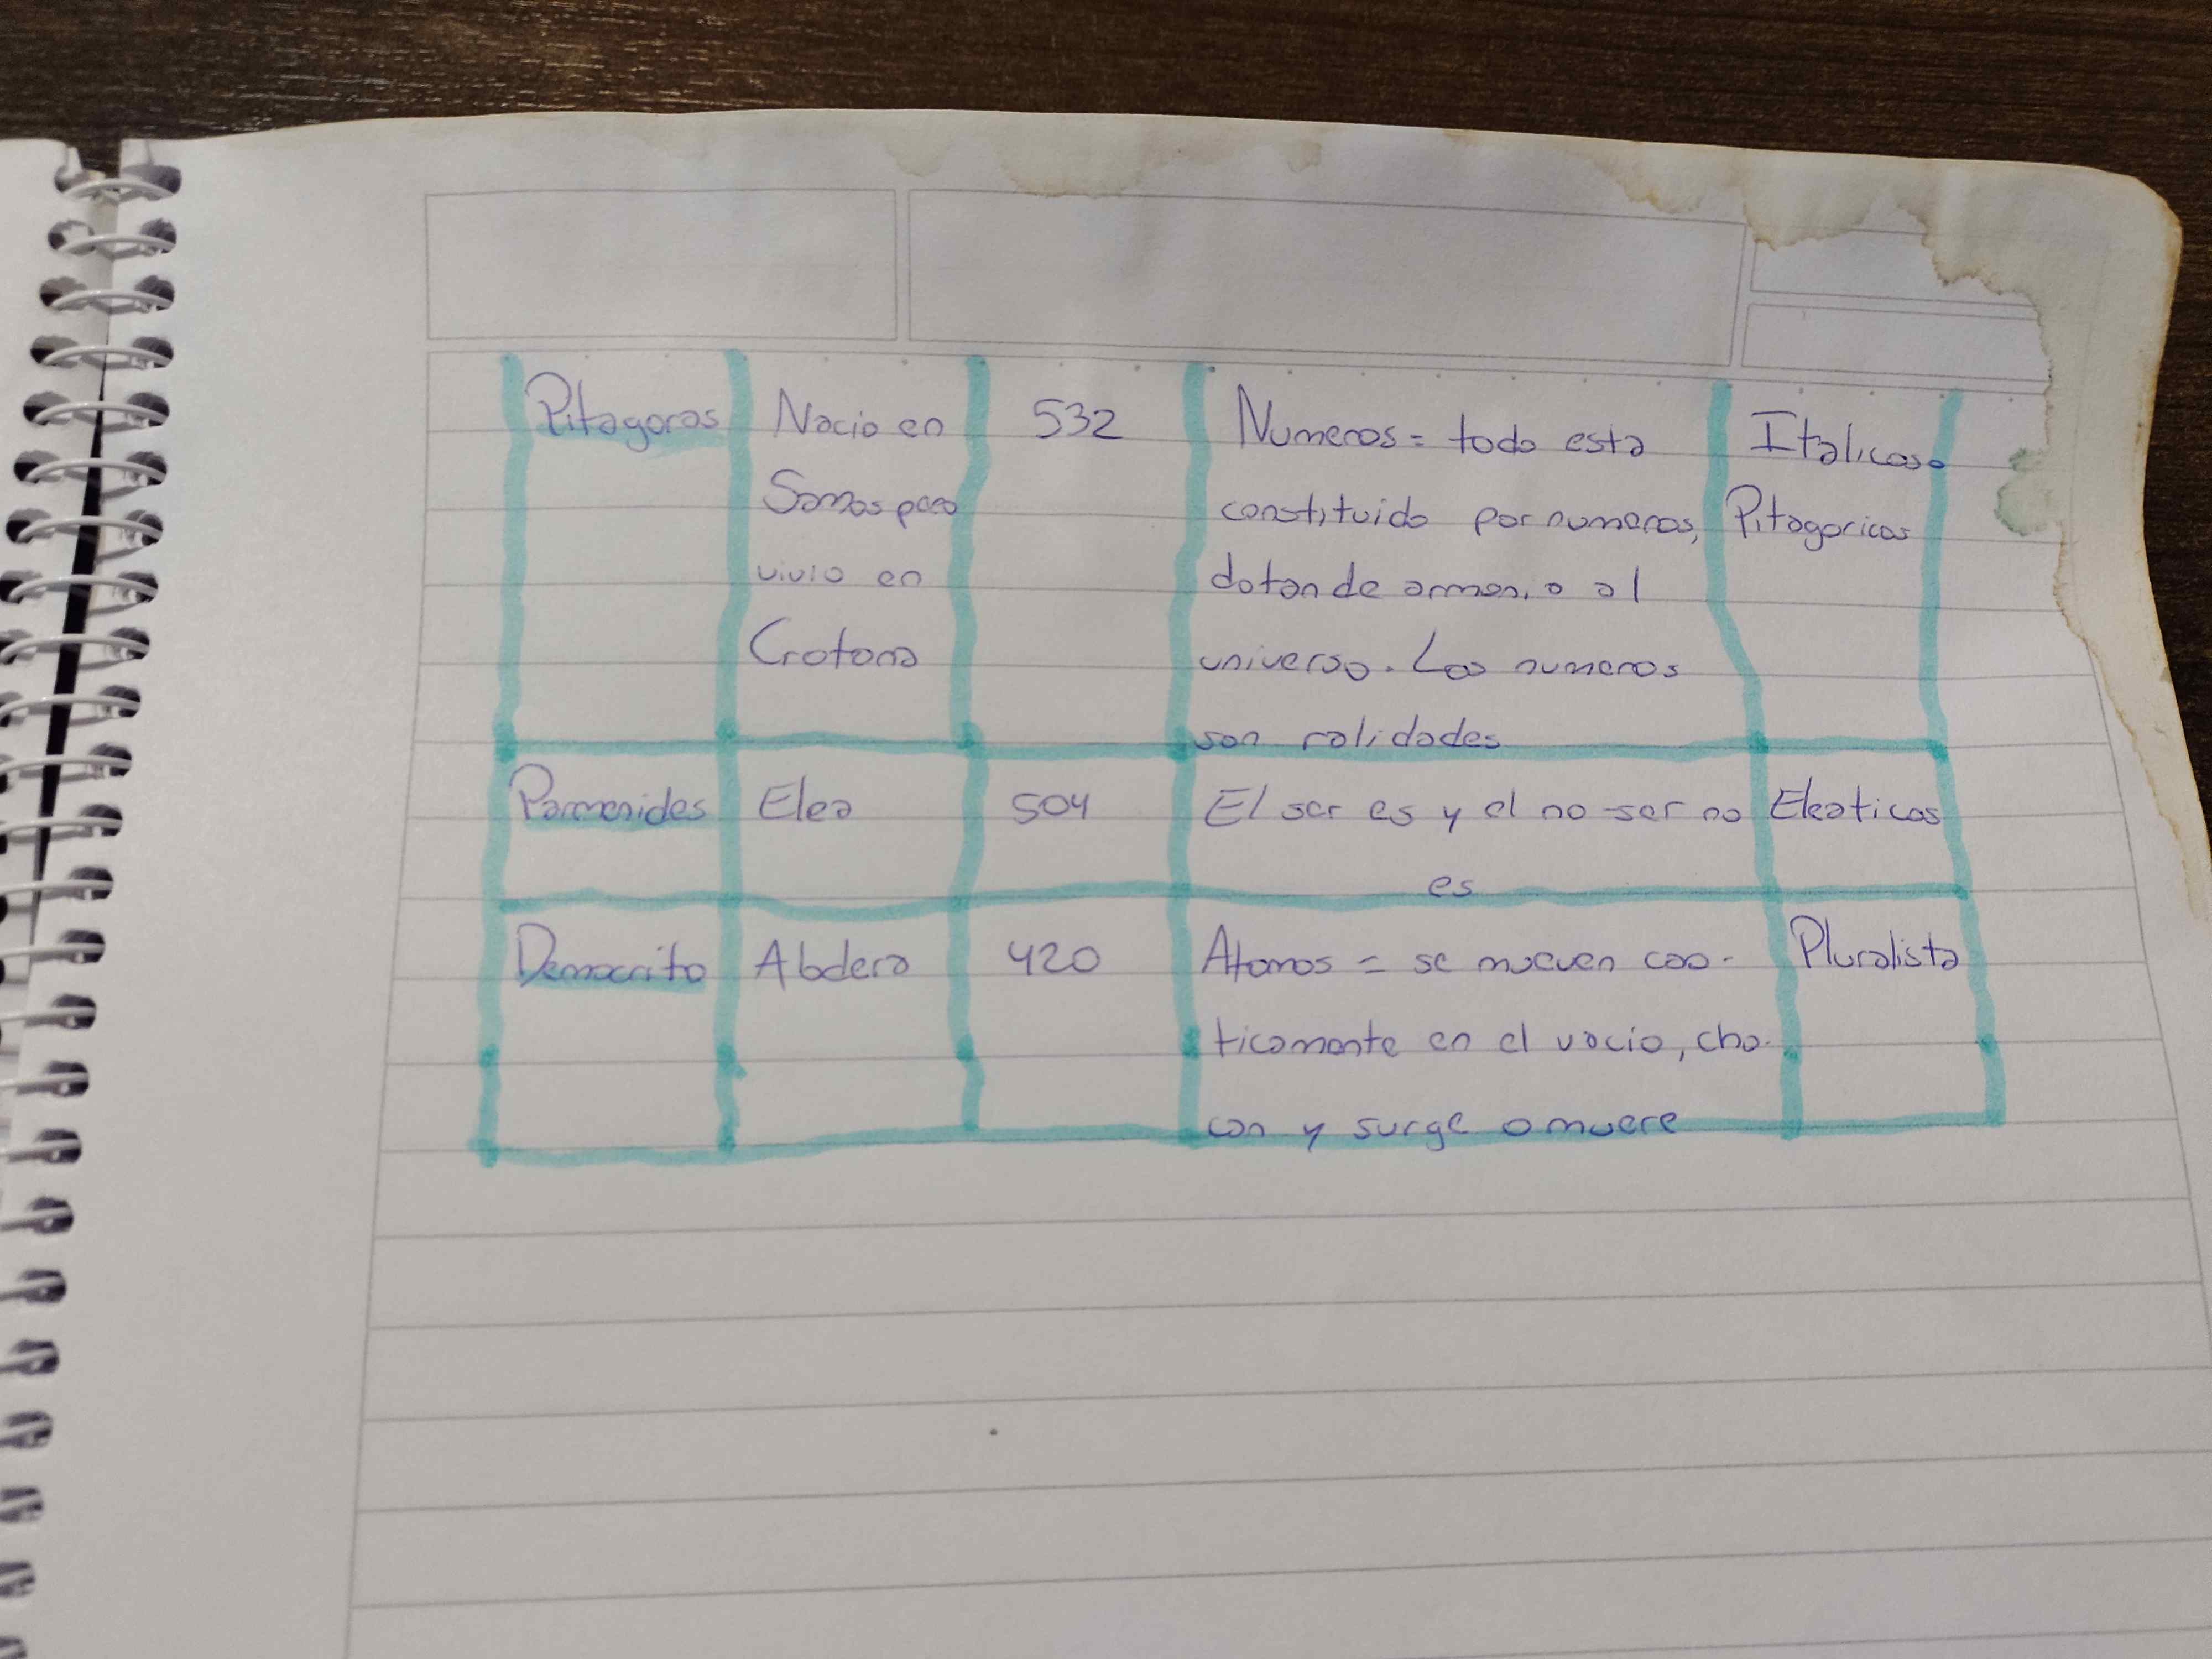 Pitagoras Nacio en 532 Numeros = todo esta Italicos o
Samos pero constituido por numeros, Pitagoricos
vivio en dotan de armonia al
Crotona universo. Los numeros
son ralidades
Parmenides Elea 504 El ser es y el no-ser no Eleaticos
es
Democrito Abdera 420 Atomos = se mueven cao- Pluralista
ticamente en el vacio, cho-
can y surge o muere